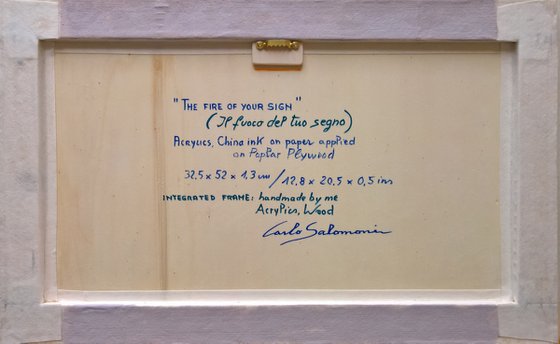 "THE FIRE OF YOUR SIGN"
(Il fuoco del tuo segno)
ACRYLICS, China ink on paper applied
on Poplar Plywood
32,5 x 52 x 1,3 cm / 12,8 x 20,5 x 0,5 ins
INTEGRATED FRAME: handmade by me
Acrylics, Wood
Carlo Salomoni